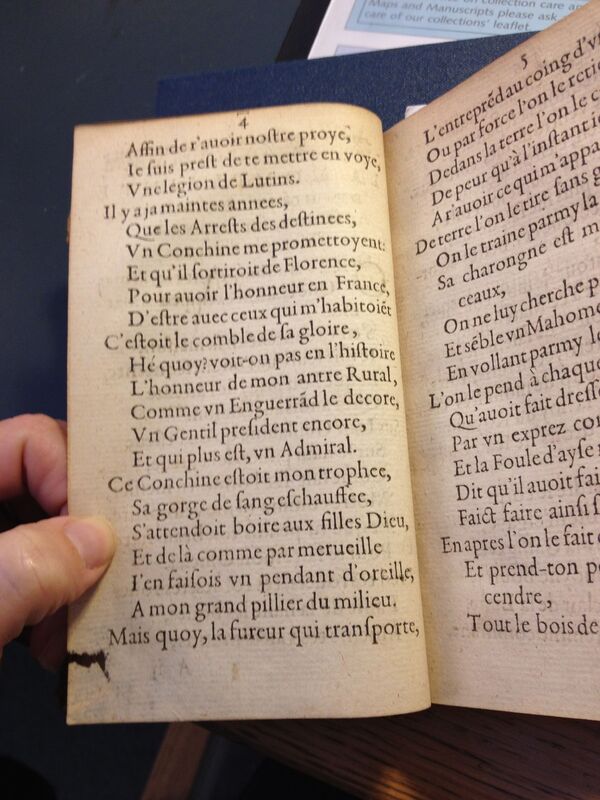 on collection care
Maps and Manuscripts please ask
care of our collections' leaflet
4
Affin de r'auoir noſtre proye,
Ie ſuis preſt de te mettre en voye,
Vne légion de Lutins.
Il y a ja maintes annees,
Que les Arreſts des deſtinees,
Vn Conchine me promettoyent:
Et qu'il ſortiroit de Florence,
Pour auoir l'honneur en France,
D'eſtre auec ceux qui m'habitoiēt
C'eſtoit le comble de ſa gloire,
Hé quoy? voit-on pas en l'hiſtoire
L'honneur de mon antre Rural,
Comme vn Enguerrād le decore,
Vn Gentil preſident encore,
Et qui plus eſt, vn Admiral.
Ce Conchine eſtoit mon trophee,
Sa gorge de ſang eſchauffee,
S'attendoit boire aux filles Dieu,
Et de là comme par merueille
I'en faiſois vn pendant d'oreille,
A mon grand pillier du milieu.
Mais quoy, la fureur qui tranſporte,
5
L'entreprēd au coing d'vn
Ou par force l'on le
Dedans la terre l'on le
De peur qu'à l'inſtant
A r'auoir ce qui m'appa
De terre l'on le tire ſans
On le traine parmy la
Sa charongne eſt m
ceaux,
On ne luy cherche p
Et sēble vn Mahome
En vollant parmy le
L'on le pend à chaque
Qu'auoit fait dreſſe
Par vn exprez con
Et la Foule d'ayſe
Dit qu'il auoit fai
Faict faire ainſi
En apres l'on le fait
Et prend-ton p
cendre,
Tout le bois de